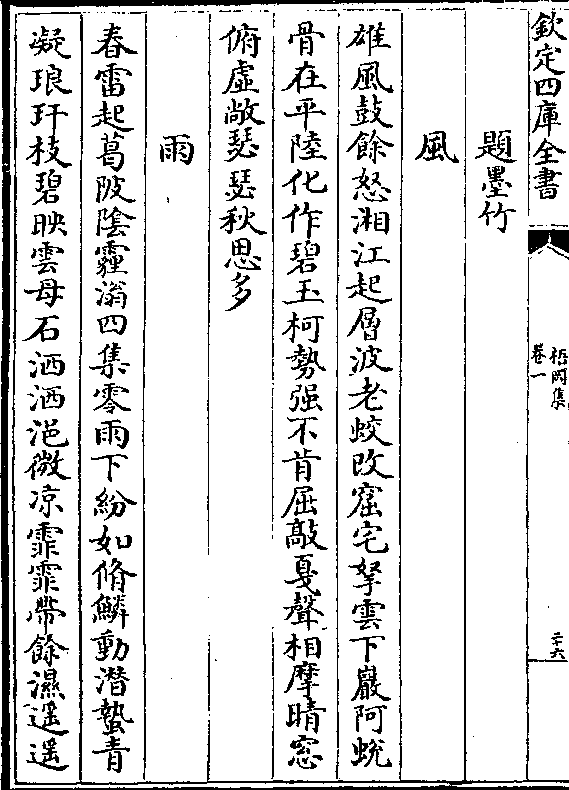 欽定四庫全書
梧岡集
卷一
二十六
題墨竹
風
雄風鼓餘怒湘江起層波老蛟改窟宅拏雲下巖阿蛻
骨在平陸化作碧玉柯勢强不肯屈敲戛聲相摩晴窓
俯虛敞瑟瑟秋思多
雨
春雷起葛陂陰霾滃四集零雨下紛如脩鱗動潛蟄青
凝琅玕枝碧映雲母石洒洒浥微凉霏霏帶餘濕遥遥